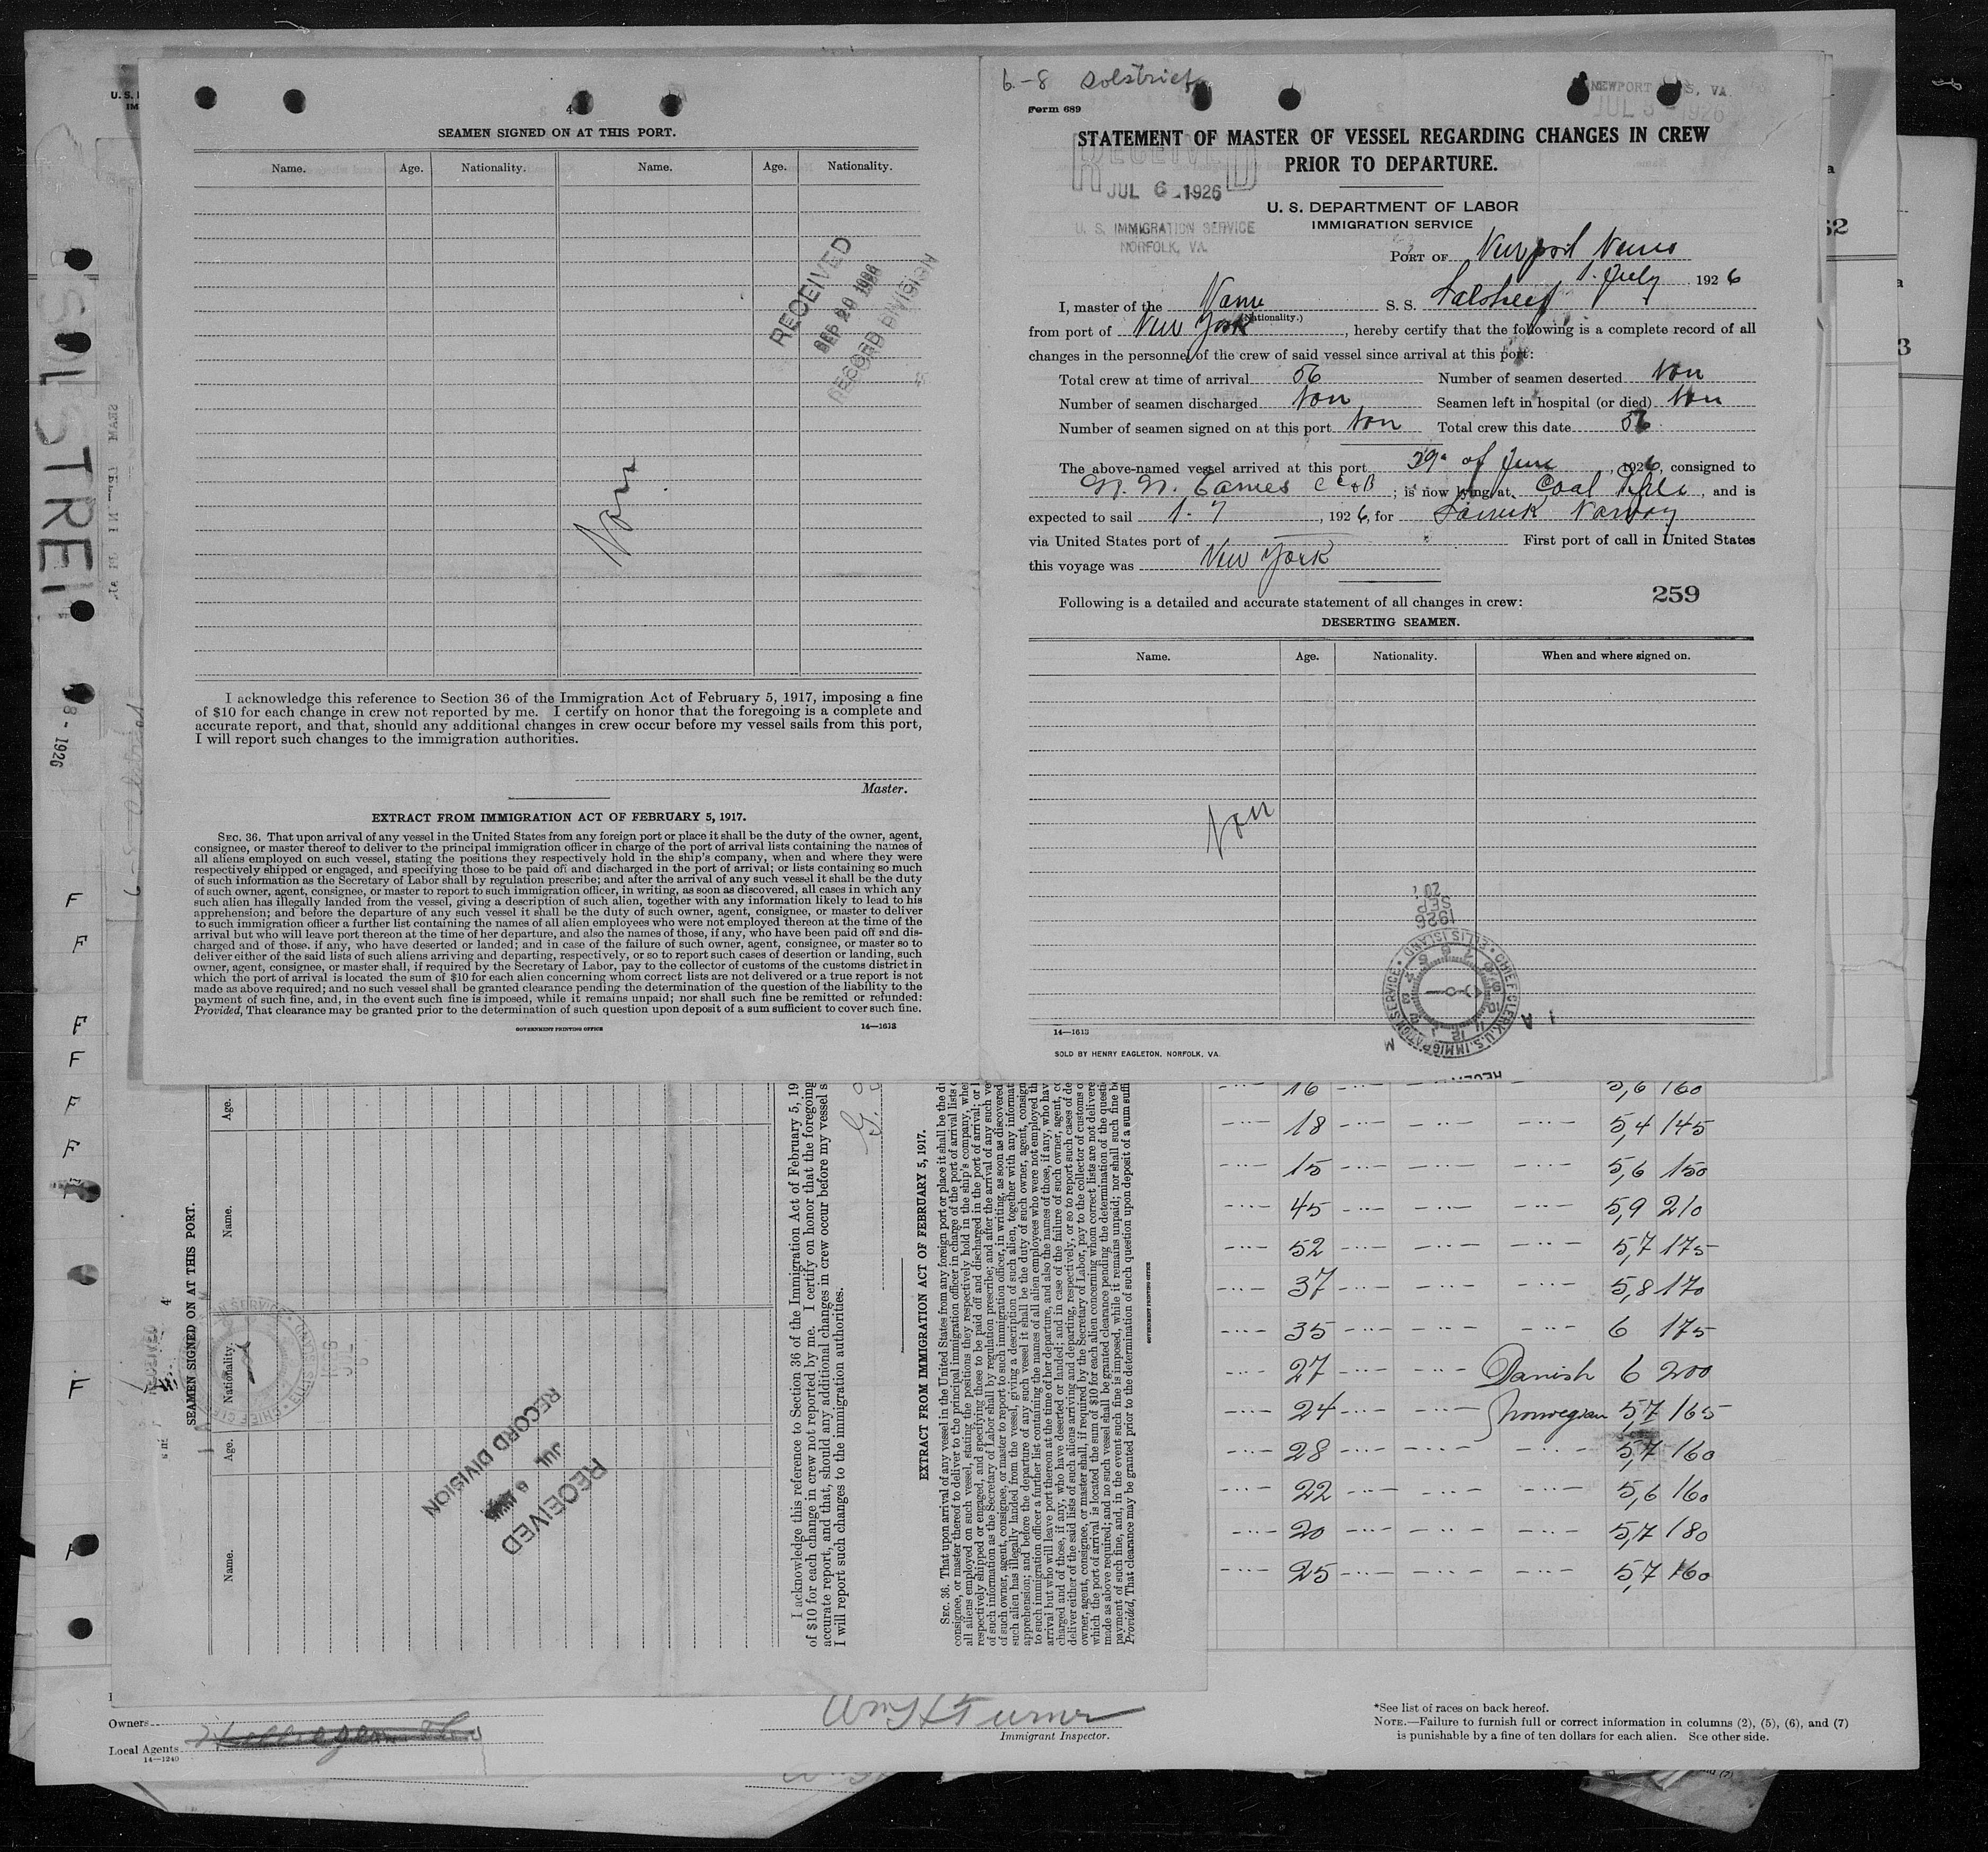 4
SEAMEN SIGNED ON AT THIS PORT.
Name. Age. Nationality. Name. Age. Nationality.
RECEIVED
SEP 20 1926
RECORD DIVISION
I acknowledge this reference to Section 36 of the Immigration Act of February 5, 1917, imposing a fine
of $10 for each change in crew not reported by me. I certify on honor that the foregoing is a complete and
accurate report, and that, should any additional changes in crew occur before my vessel sails from this port,
I will report such changes to the immigration authorities.
Master.
EXTRACT FROM IMMIGRATION ACT OF FEBRUARY 5, 1917.
SEC. 36. That upon arrival of any vessel in the United States from any foreign port or place it shall be the duty of the owner, agent,
consignee, or master thereof to deliver to the principal immigration officer in charge of the port of arrival lists containing the names of
all aliens employed on such vessel, stating the positions they respectively hold in the ship's company, when and where they were
respectively shipped or engaged, and specifying those to be paid off and discharged in the port of arrival; or lists containing so much
of such information as the Secretary of Labor shall by regulation prescribe; and after the arrival of any such vessel it shall be the duty
of such owner, agent, consignee, or master to report to such immigration officer, in writing, as soon as discovered, all cases in which any
such alien has illegally landed from the vessel, giving a description of such alien, together with any information likely to lead to his
apprehension; and before the departure of any such vessel it shall be the duty of such owner, agent, consignee, or master to deliver
to such immigration officer a further list containing the names of all alien employees who were not employed thereon at the time of the
arrival but who will leave port thereon at the time of her departure, and also the names of those, if any, who have been paid off and dis-
charged and of those, if any, who have deserted or landed; and in case of the failure of such owner, agent, consignee, or master so to
deliver either of the said lists of such aliens arriving and departing, respectively, or so to report such cases of desertion or landing, such
owner, agent, consignee, or master shall, if required by the Secretary of Labor, pay to the collector of customs of the customs district in
which the port of arrival is located the sum of $10 for each alien concerning whom correct lists are not delivered or a true report is not
made as above required; and no such vessel shall be granted clearance pending the determination of the question of the liability to the
payment of such fine, and, in the event such fine is imposed, while it remains unpaid; nor shall such fine be remitted or refunded:
Provided, That clearance may be granted prior to the determination of such question upon deposit of a sum sufficient to cover such fine.
GOVERNMENT PRINTING OFFICE 14—1613
6-8 Solstreif
Form 689
NEWPORT NEWS, VA.
JUL 3 1926
STATEMENT OF MASTER OF VESSEL REGARDING CHANGES IN CREW
PRIOR TO DEPARTURE.
RECEIVED
JUL 6 1926
U. S. IMMIGRATION SERVICE
NORFOLK, VA.
U. S. DEPARTMENT OF LABOR
IMMIGRATION SERVICE
PORT OF Newport News
1. July 1926
I, master of the S. S. Solstreif
(Nationality.)
from port of New York, hereby certify that the following is a complete record of all
changes in the personnel of the crew of said vessel since arrival at this port:
Total crew at time of arrival 56 Number of seamen deserted Non
Number of seamen discharged Non Seamen left in hospital (or died) Non
Number of seamen signed on at this port Non Total crew this date 56
The above-named vessel arrived at this port 29. of June, 1926, consigned to
; is now lying at Coal, and is
expected to sail 1. 7, 1926, for Norway
via United States port of First port of call in United States
this voyage was New York
259
Following is a detailed and accurate statement of all changes in crew:
DESERTING SEAMEN.
Name. Age. Nationality. When and where signed on.
Non
SEP 20 1926
CHIEF CLERK, U.S. IMMIGRATION SERVICE • ELLIS ISLAND
14—1613
SOLD BY HENRY EAGLETON, NORFOLK, VA.
SOLSTREIF
4
SEAMEN SIGNED ON AT THIS PORT.
Name. Age. Nationality. Name. Age.
RECEIVED
JUL
RECORD DIVISION
I acknowledge this reference to Section 36 of the Immigration Act of February 5, 19
of $10 for each change in crew not reported by me. I certify on honor that the foregoing
accurate report, and that, should any additional changes in crew occur before my vessel s
I will report such changes to the immigration authorities.
EXTRACT FROM IMMIGRATION ACT OF FEBRUARY 5, 1917.
GOVERNMENT PRINTING OFFICE
16 5,6 160
18 5,4 145
15 5,6 150
45 5,9 210
52 5,7 175
37 5,8 170
35 6 175
27 Danish 6 200
24 Norwegian 5,7 165
28 5,7 160
22 5,6 160
20 5,7 180
25 5,7 160
Owners
Local Agents
14—1240
Wm H Turner
Immigrant Inspector.
*See list of races on back hereof.
NOTE.—Failure to furnish full or correct information in columns (2), (5), (6), and (7)
is punishable by a fine of ten dollars for each alien. See other side.